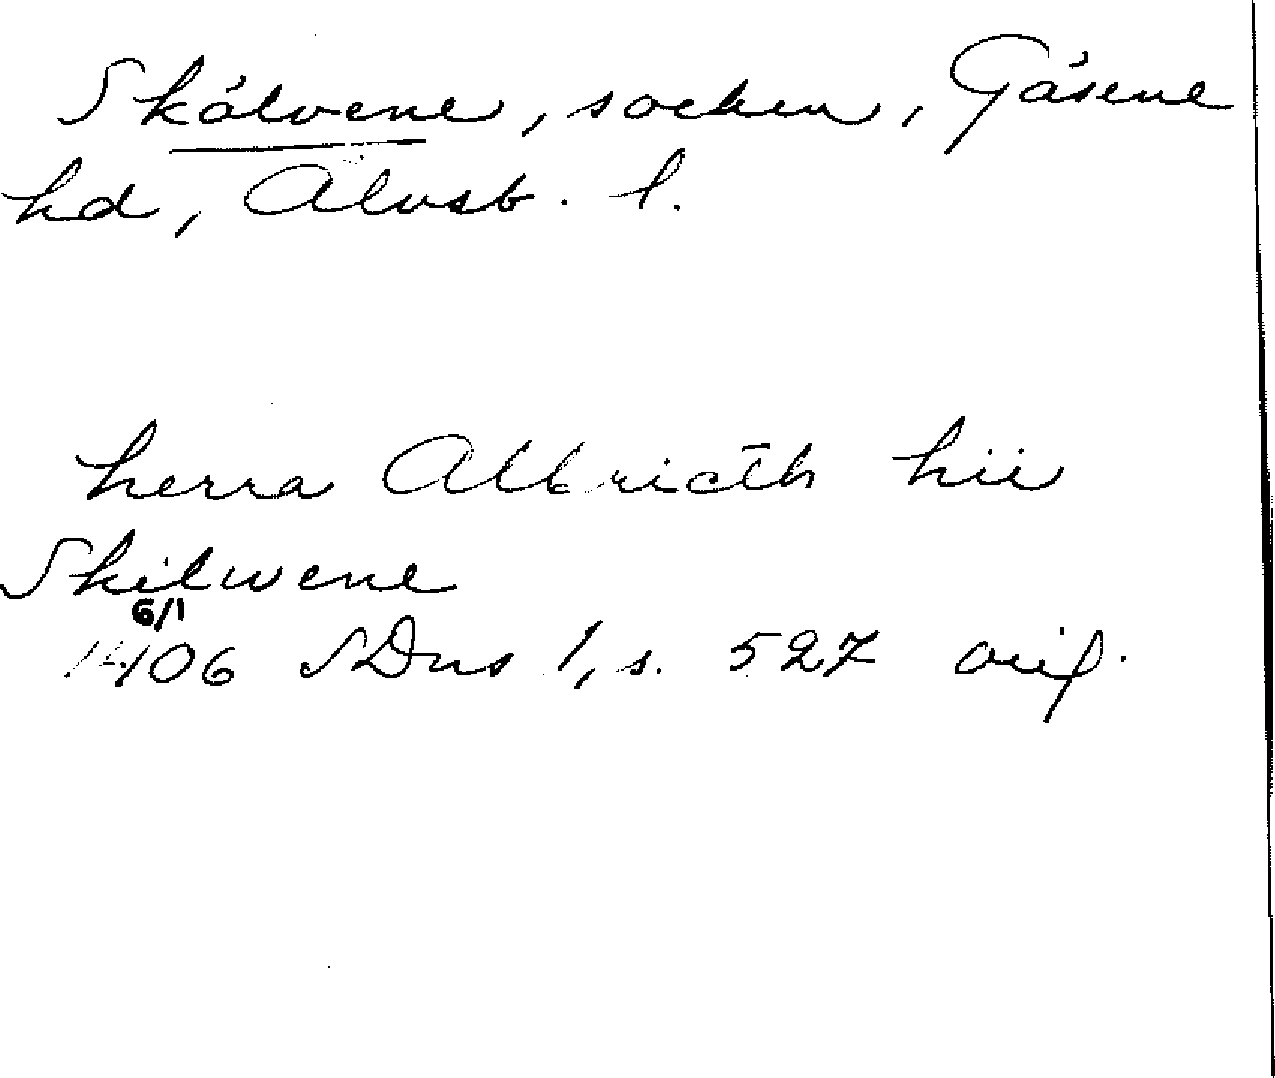 Skölvene, socken, Gäsene
hd, Älvsb. l.
herra Albrictħ hii
Skilwene
6/1
1406 SDns 1, s. 527 orig.